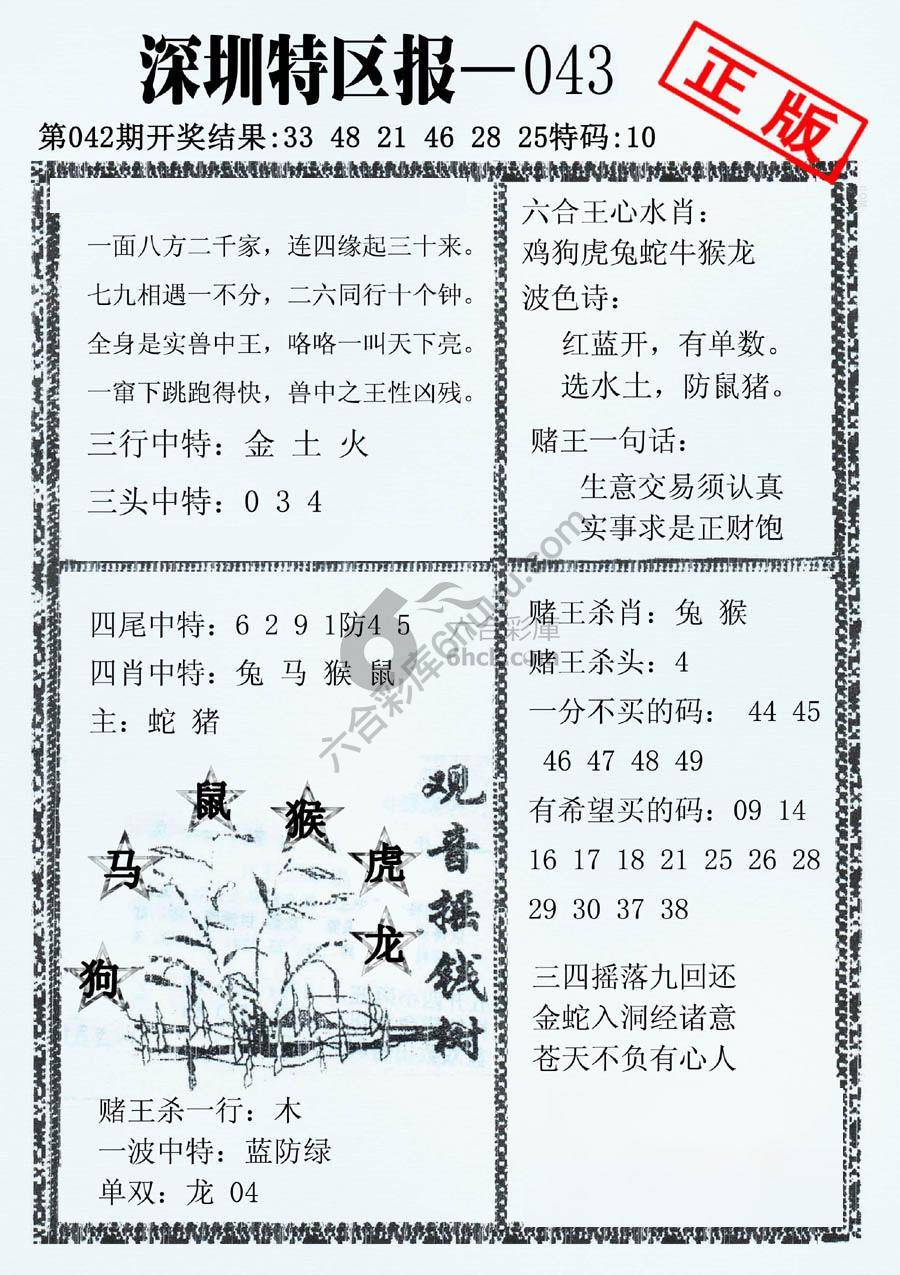 深圳特区报—043
正版
第042期开奖结果:33 48 21 46 28 25特码:10
一面八方二千家，连四缘起三十来。
七九相遇一不分，二六同行十个钟。
全身是实兽中王，咯咯一叫天下亮。
一窜下跳跑得快，兽中之王性凶残。
三行中特：金 土 火
三头中特：0 3 4
六合王心水肖：
鸡狗虎兔蛇牛猴龙
波色诗：
红蓝开，有单数。
选水土，防鼠猪。
赌王一句话：
生意交易须认真
实事求是正财饱
四尾中特：6 2 9 1防4 5
四肖中特：兔 马 猴 鼠
主：蛇 猪
鼠
猴
马
虎
龙
狗
观音摇钱树
赌王杀一行：木
一波中特：蓝防绿
单双：龙 04
赌王杀肖：兔 猴
赌王杀头：4
一分不买的码： 44 45
46 47 48 49
有希望买的码：09 14
16 17 18 21 25 26 28
29 30 37 38
三四摇落九回还
金蛇入洞经诸意
苍天不负有心人
六合彩库6htktu.com
六合彩库